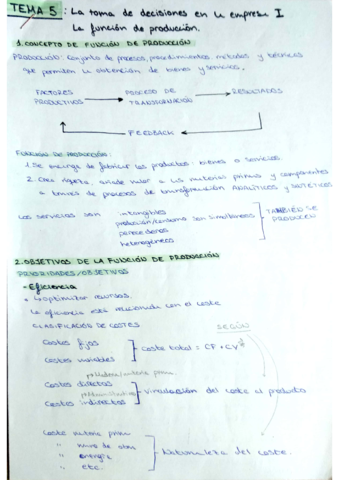 TEMA 5: La toma de decisiones en la empresa I
La función de producción.
1. CONCEPTO DE FUNCIÓN DE PRODUCCIÓN
PRODUCCIÓN: Conjunto de procesos, procedimientos, métodos y técnicas
que permiten la obtención de bienes y servicios.
FACTORES PRODUCTIVOS → PROCESO DE TRANSFORMACIÓN → RESULTADOS
FEEDBACK
FUNCIÓN DE PRODUCCIÓN:
1. Se encarga de fabricar los productos: bienes o servicios
2. Crea riqueza, añade valor a las materias primas y componentes
a través de procesos de transformación ANALÍTICOS y SINTÉTICOS
Los servicios son
intangibles
producción/consumo son simultáneos
perecederos
heterogéneos
TAMBIÉN SE PRODUCEN
2. OBJETIVOS DE LA FUNCIÓN DE PRODUCCIÓN
PRIORIDADES/OBJETIVOS
- Eficiencia
optimizar recursos.
La eficiencia está relacionada con el coste
CLASIFICACIÓN DE COSTES
SEGÚN
Costes fijos
Costes variables
coste total = CF + CV
materia prim.
Costes directos
Costes indirectos
vinculación del coste al producto
Coste materia prima
" mano de obra
" energía
" etc.
Naturaleza del coste.